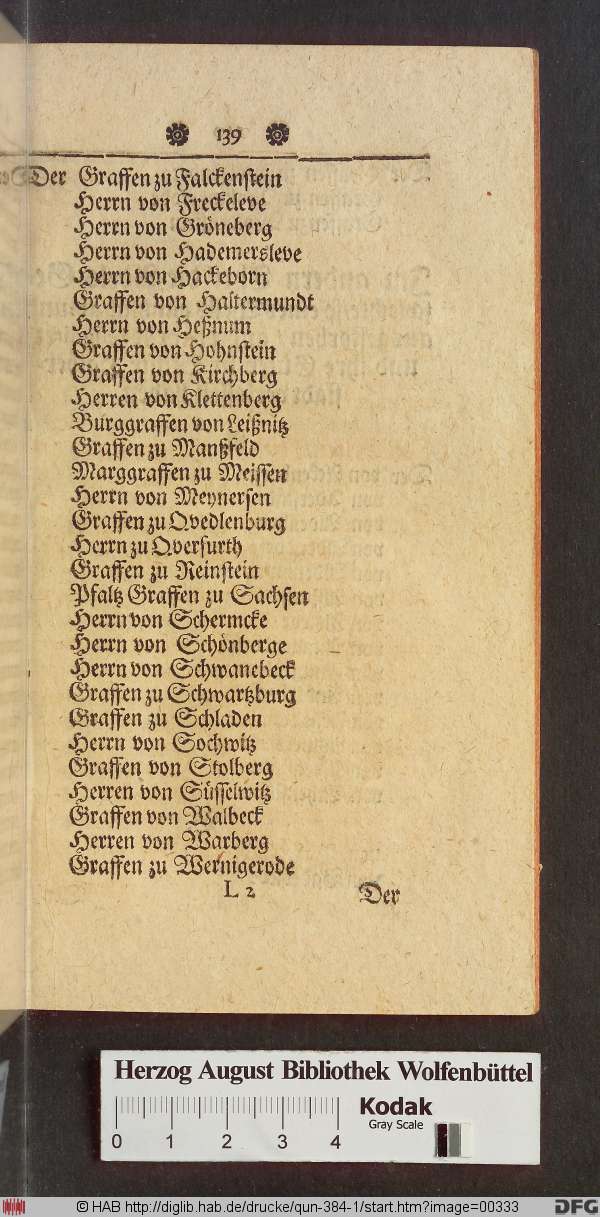 139
Der Graffen zu Falckenstein
Herrn von Freckeleve
Herrn von Gröneberg
Herrn von Hademersleve
Herrn von Hackeborn
Graffen von Haltermundt
Herrn von Heßnum
Graffen von Hohnstein
Graffen von Kirchberg
Herren von Klettenberg
Burggraffen von Leißnitz
Graffen zu Manßfeld
Marggraffen zu Meissen
Herrn von Meynersen
Graffen zu Qvedlenburg
Herrn zu Qverfurth
Graffen zu Reinstein
Pfaltz Graffen zu Sachsen
Herrn von Schermcke
Herrn von Schönberge
Herrn von Schwanebeck
Graffen zu Schwartzburg
Graffen zu Schladen
Herrn von Sochwitz
Graffen von Stolberg
Herren von Süsselwitz
Graffen von Walbeck
Herren von Warberg
Graffen zu Wernigerode
L 2 Der
Herzog August Bibliothek Wolfenbüttel
Kodak
Gray Scale
0 1 2 3 4
© HAB http://diglib.hab.de/drucke/qun-384-1/start.htm?image=00333
DFG